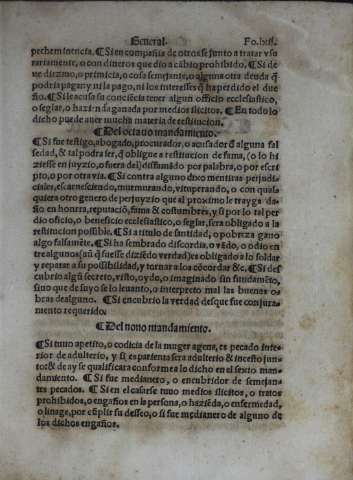 General. Fo.biij.
prehemineneia. ¶ Si en compañia de otros se junto a tratar vsu
rariamente, o con dineros que dio a cãbio prohibido. ¶ Si de
ue diezmo, o primicia, o cosa semejante, o alguna otra deuda q̃
podria pagar y ni la pago, ni los interesses q̃ ha perdido el due
ño. ¶ Si le acusa su conciẽcia tener algun officio ecclesiastico,
o seglar, o haziẽda ganada por medios ilicitos. ¶ En todo lo
dicho puede auer mucha materia de restitucion.
¶ Del octauo mandamiento.
¶ Si fue testigo, abogado, procurador, o acusador cõ alguna fal
sedad, & tal podra ser, q̃ obligue a restitucion de fama, (o lo hi
ziesse en juyzio, o fuera del) disfamãdo por palabra, o por escri
pto, o por otra via. ¶ Si contra alguno dixo mentiras perjudi
ciales, escarneciendo, murmurando, vituperando, o con qual
quiera otro genero de perjuyzio que al proximo le trayga da
ño en honrra, reputaciõ, fama & costumbres, y si por lo tal per
dio oficio, o beneficio ecclesiastico, o seglar, sera obligado a la
restitucion possible. ¶ Si a titulo de santidad, o pobreza gano
algo falsamẽte. ¶ Si ha sembrado discordia, o vẽdo, o odio en
tre algunos (aũ q̃ fuesse diziẽdo verdad) es obligado a lo soldar
y reparar a su possibilidad, y tornar a los cõcordar &c. ¶ Si des
cubrio algũ secreto, visto, oydo, o imaginado sin fundamẽto,
sino que de suyo se lo leuanto, o interpreto mal las buenas o
bras de alguno. ¶ Si encubrio la verdad desque fue conjura
mento requerido.
¶ Del nono mandamiento.
¶ Si tuuo apetito, o codicia de la muger agena, es pecado inte
rior de adulterio, y si es parienta sera adulterio & incesto jun
to: & de ay se qualificara conforme a lo dicho en el sexto man
damiento. ¶ Si fue medianero, o encubridor de semejan
tes pecados. ¶ Si en el casarse tuuo medios ilicitos, o tratos
prohibidos, o engaños en la persona, o haziẽda, o enfermedad,
o linage, por cũplir su desseo, o si fue medianero de alguno de
los dichos engaños.